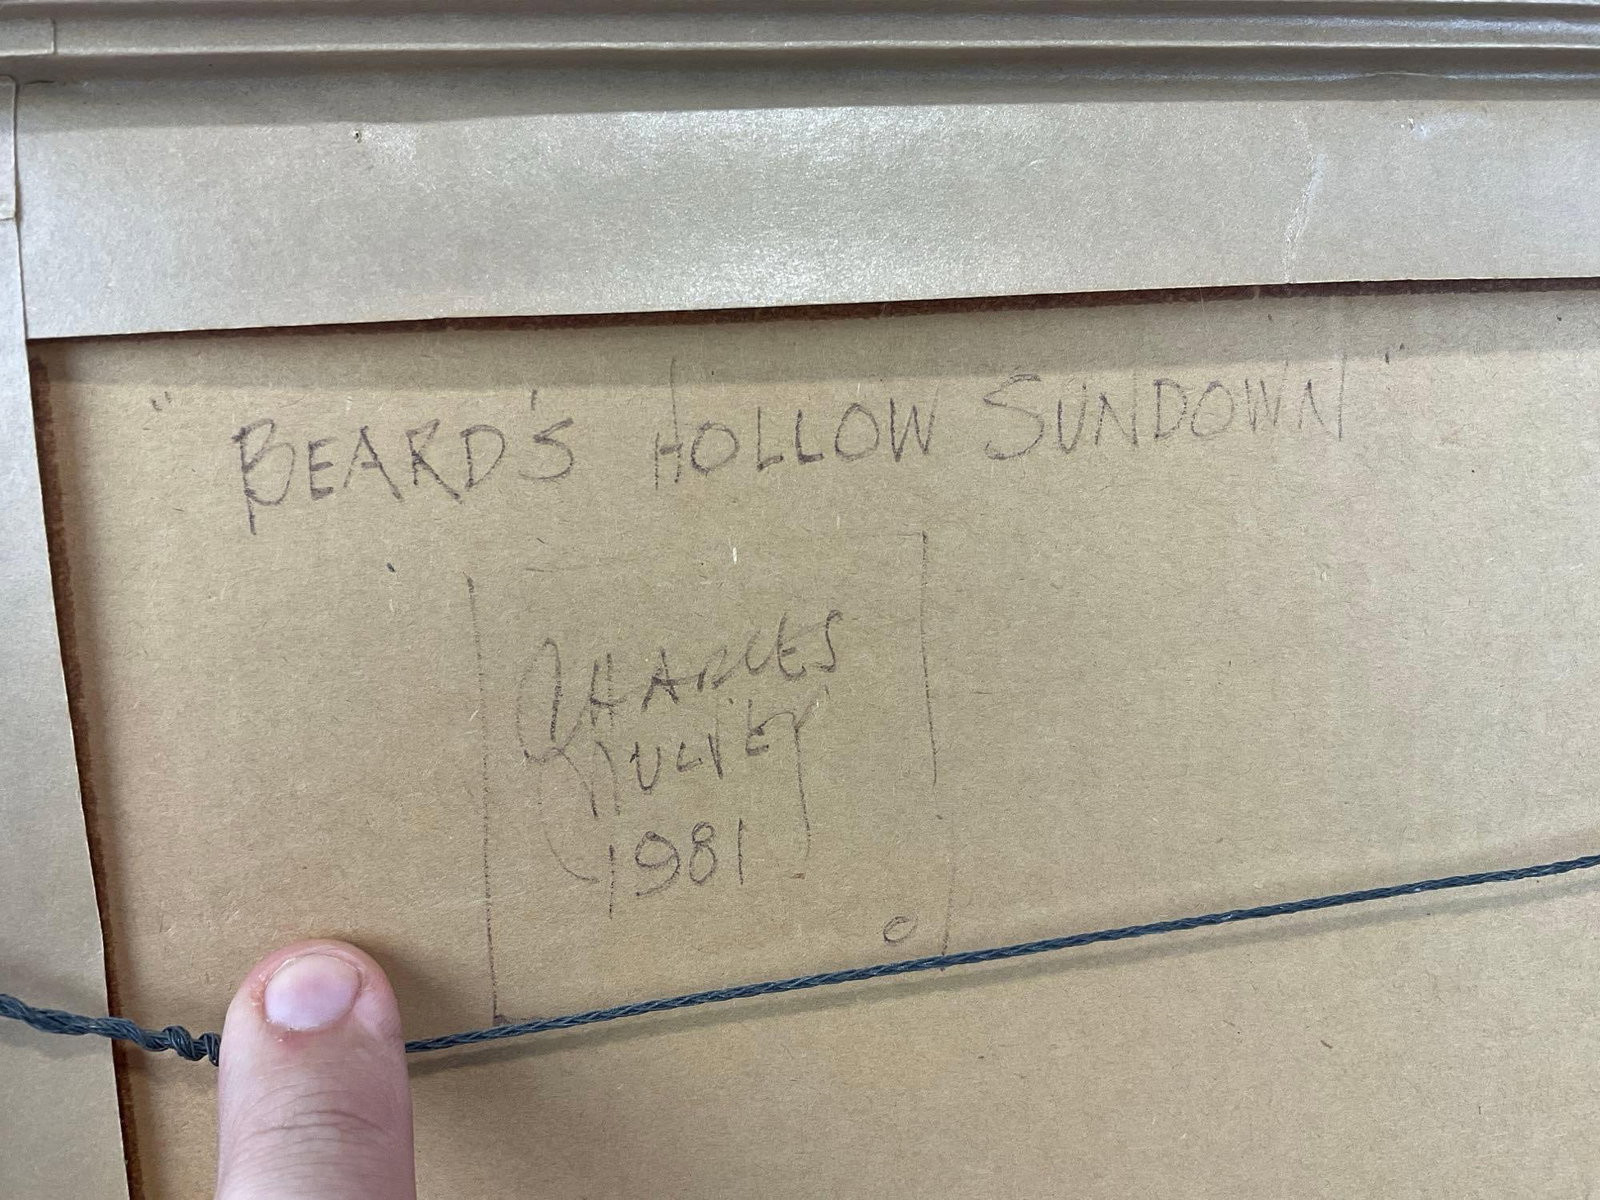 "BEARD'S HOLLOW SUNDOWN"
CHARLES
MULVEY
1981